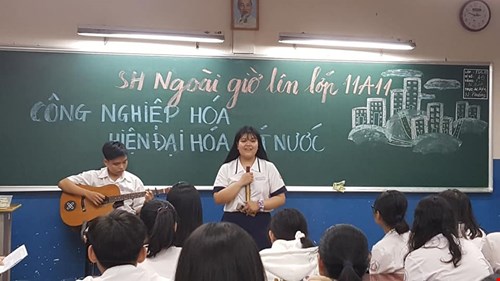 SH Ngoài giờ lên lớp 11A11
CÔNG NGHIỆP HÓA
HIỆN ĐẠI HÓA ĐẤT NƯỚC